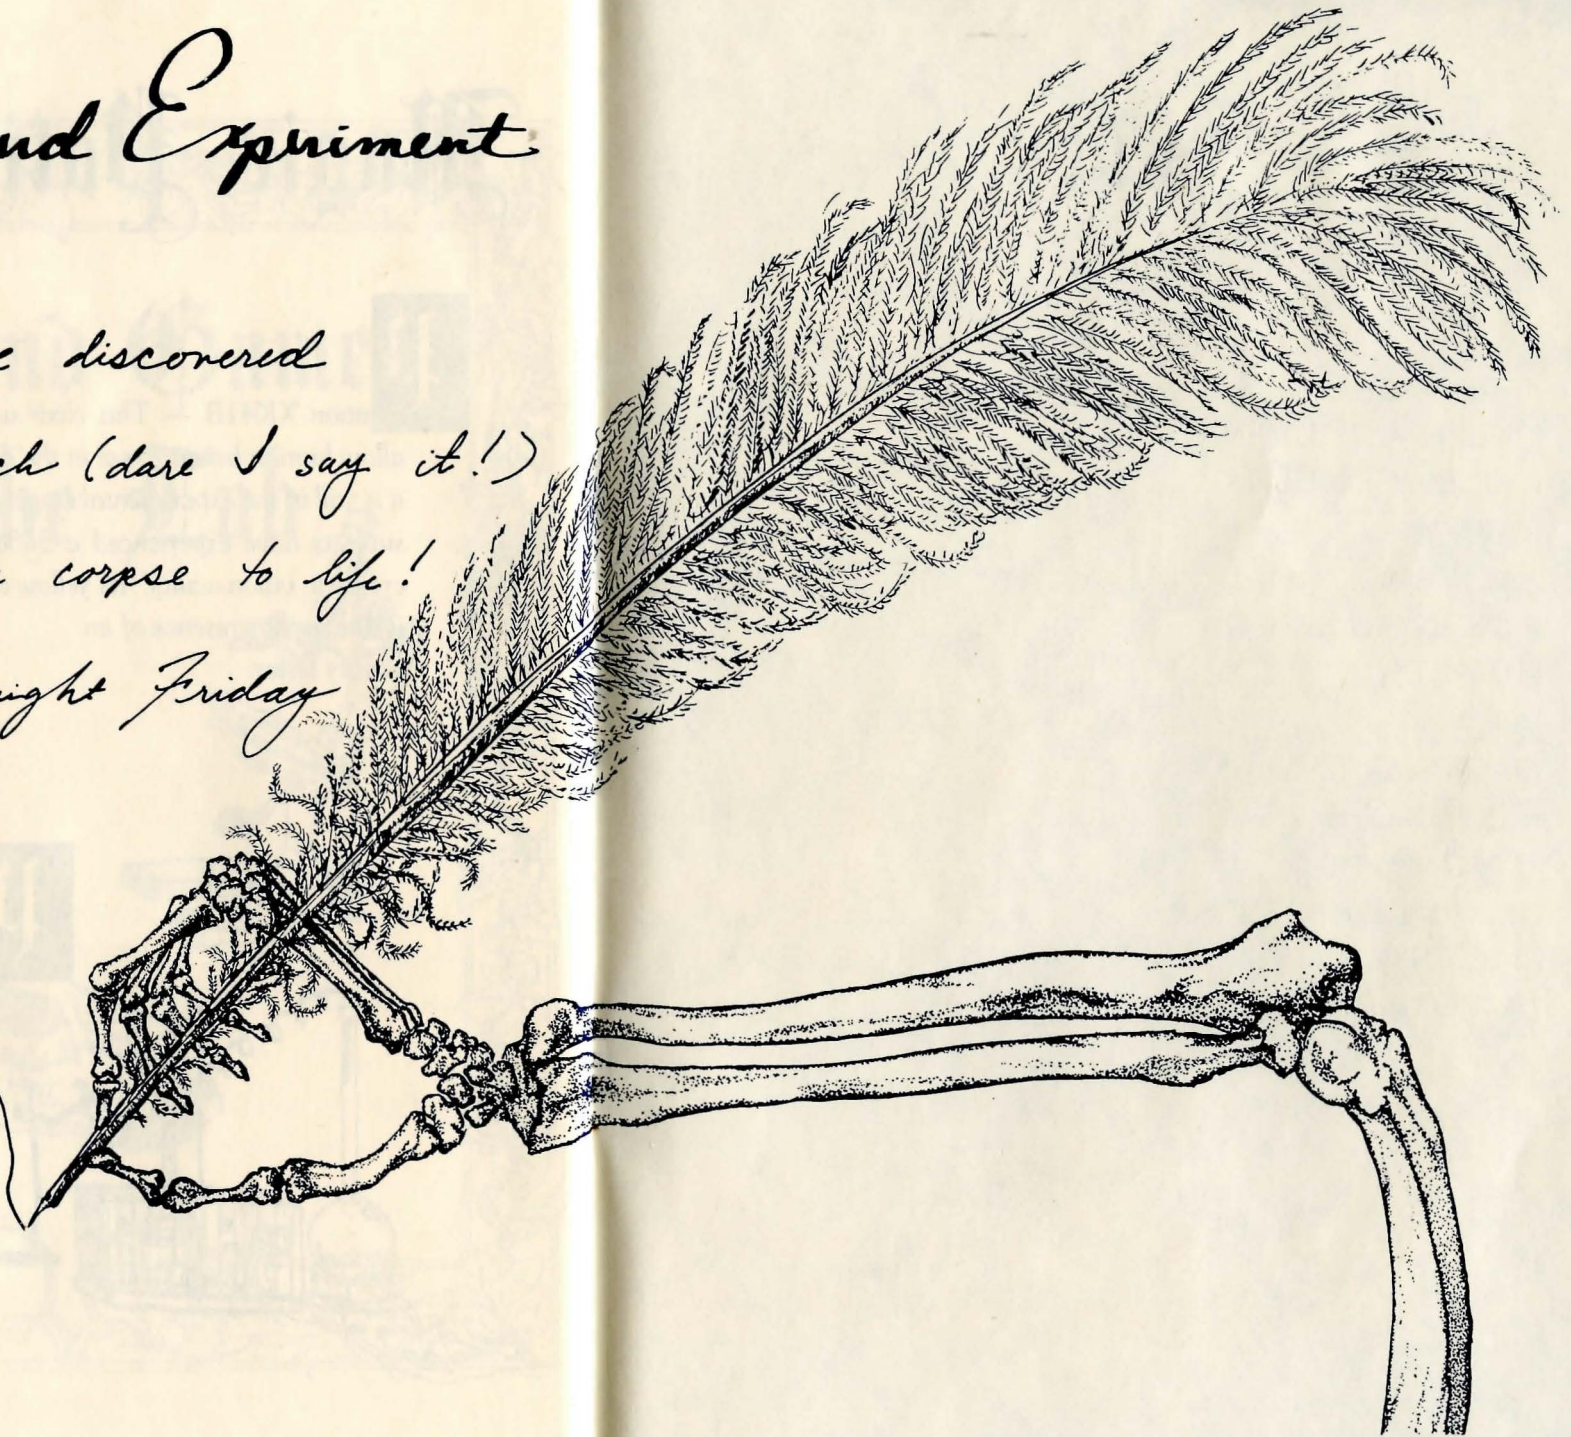 ud Experiment
e discovered
ch (dare I say it!)
corpse to life!
ight Friday